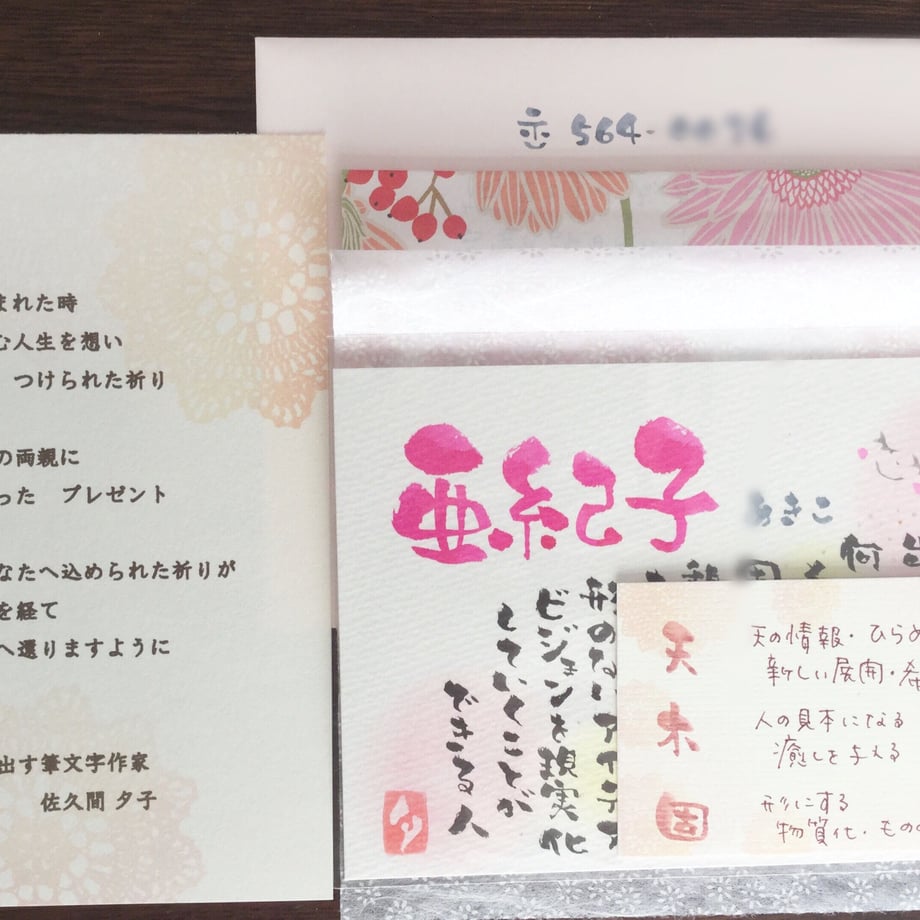 〒564-
まれた時
む人生を想い
つけられた祈り
の両親に
った プレゼント
なたへ込められた祈りが
を経て
へ還りますように
出す筆文字作家
佐久間 夕子
亜紀子
あきこ
何
形のないアイデア
ビジョンを現実化
していくことが
できる人
夕
天
天の情報・ひらめ
新しい展開・発
木
人の見本になる
癒しを与える
固
形にする
物質化・もの